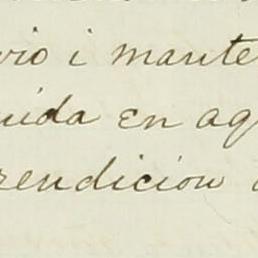 vio i mante
uida en ag
rendicion